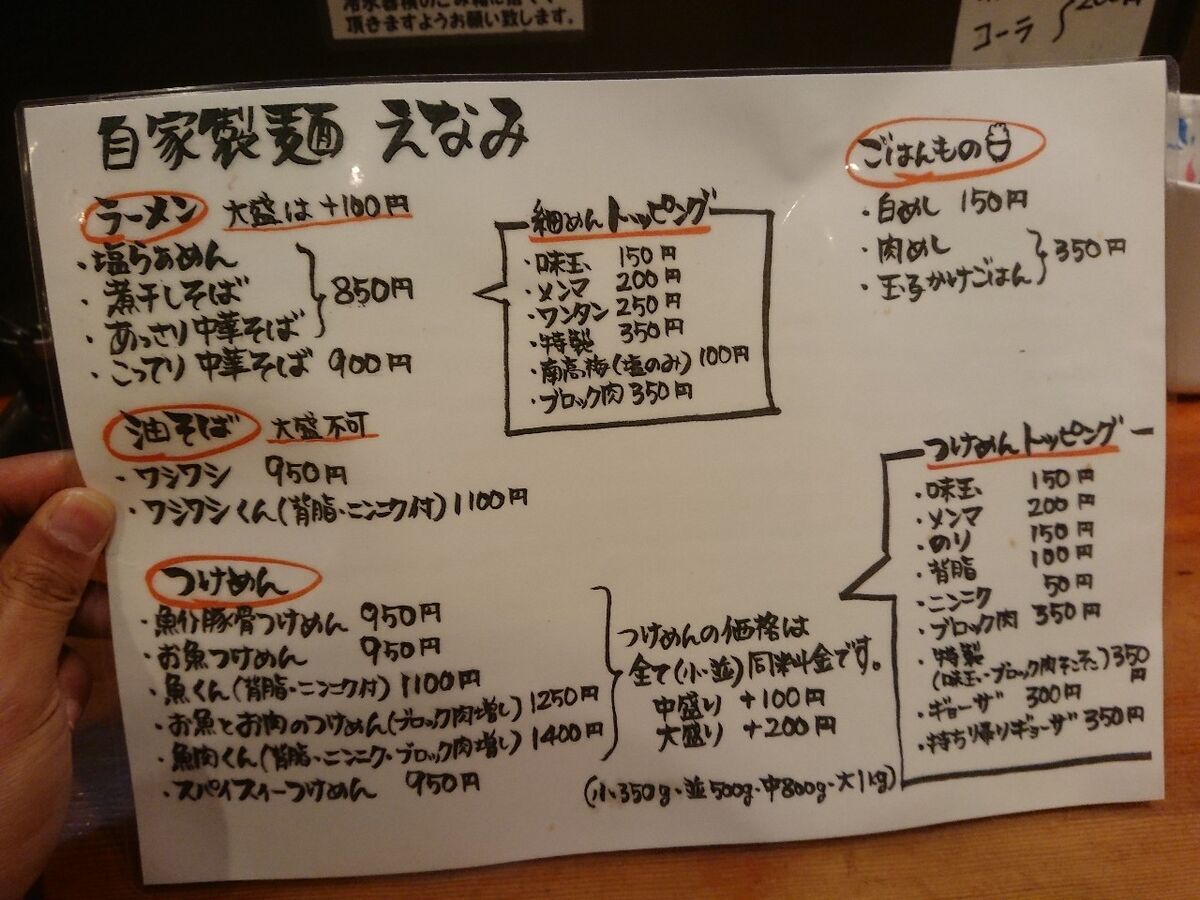 頂きますようお願い致します。
コーラ
200円
自家製麺 えなみ
ラーメン 大盛は+100円
・塩らぁめん
・煮干しそば
・あっさり中華そば
850円
・こってり中華そば 900円
油そば 大盛不可
・ワシワシ 950円
・ワシワシくん(背脂・ニンニク付)1100円
つけめん
・魚介豚骨つけめん 950円
・お魚つけめん 950円
・魚くん(背脂・ニンニク付)1100円
・お魚とお肉のつけめん(ブロック肉増し)1250円
・魚肉くん(背脂・ニンニク・ブロック肉増し)1400円
・スパイスィーつけめん 950円
つけめんの価格は
全て(小・並)同料金です。
中盛り +100円
大盛り +200円
(小350g・並500g・中800g・大1kg)
細めんトッピング
・味玉 150円
・メンマ 200円
・ワンタン 250円
・特製 350円
・南高梅(塩のみ)100円
・ブロック肉 350円
ごはんもの
・白めし 150円
・肉めし
・玉子かけごはん
350円
つけめんトッピング
・味玉 150円
・メンマ 200円
・のり 150円
・背脂 100円
・ニンニク 50円
・ブロック肉 350円
・特製
(味玉・ブロック肉そこそこ)350円
・ギョーザ 300円
・持ち帰りギョーザ 350円